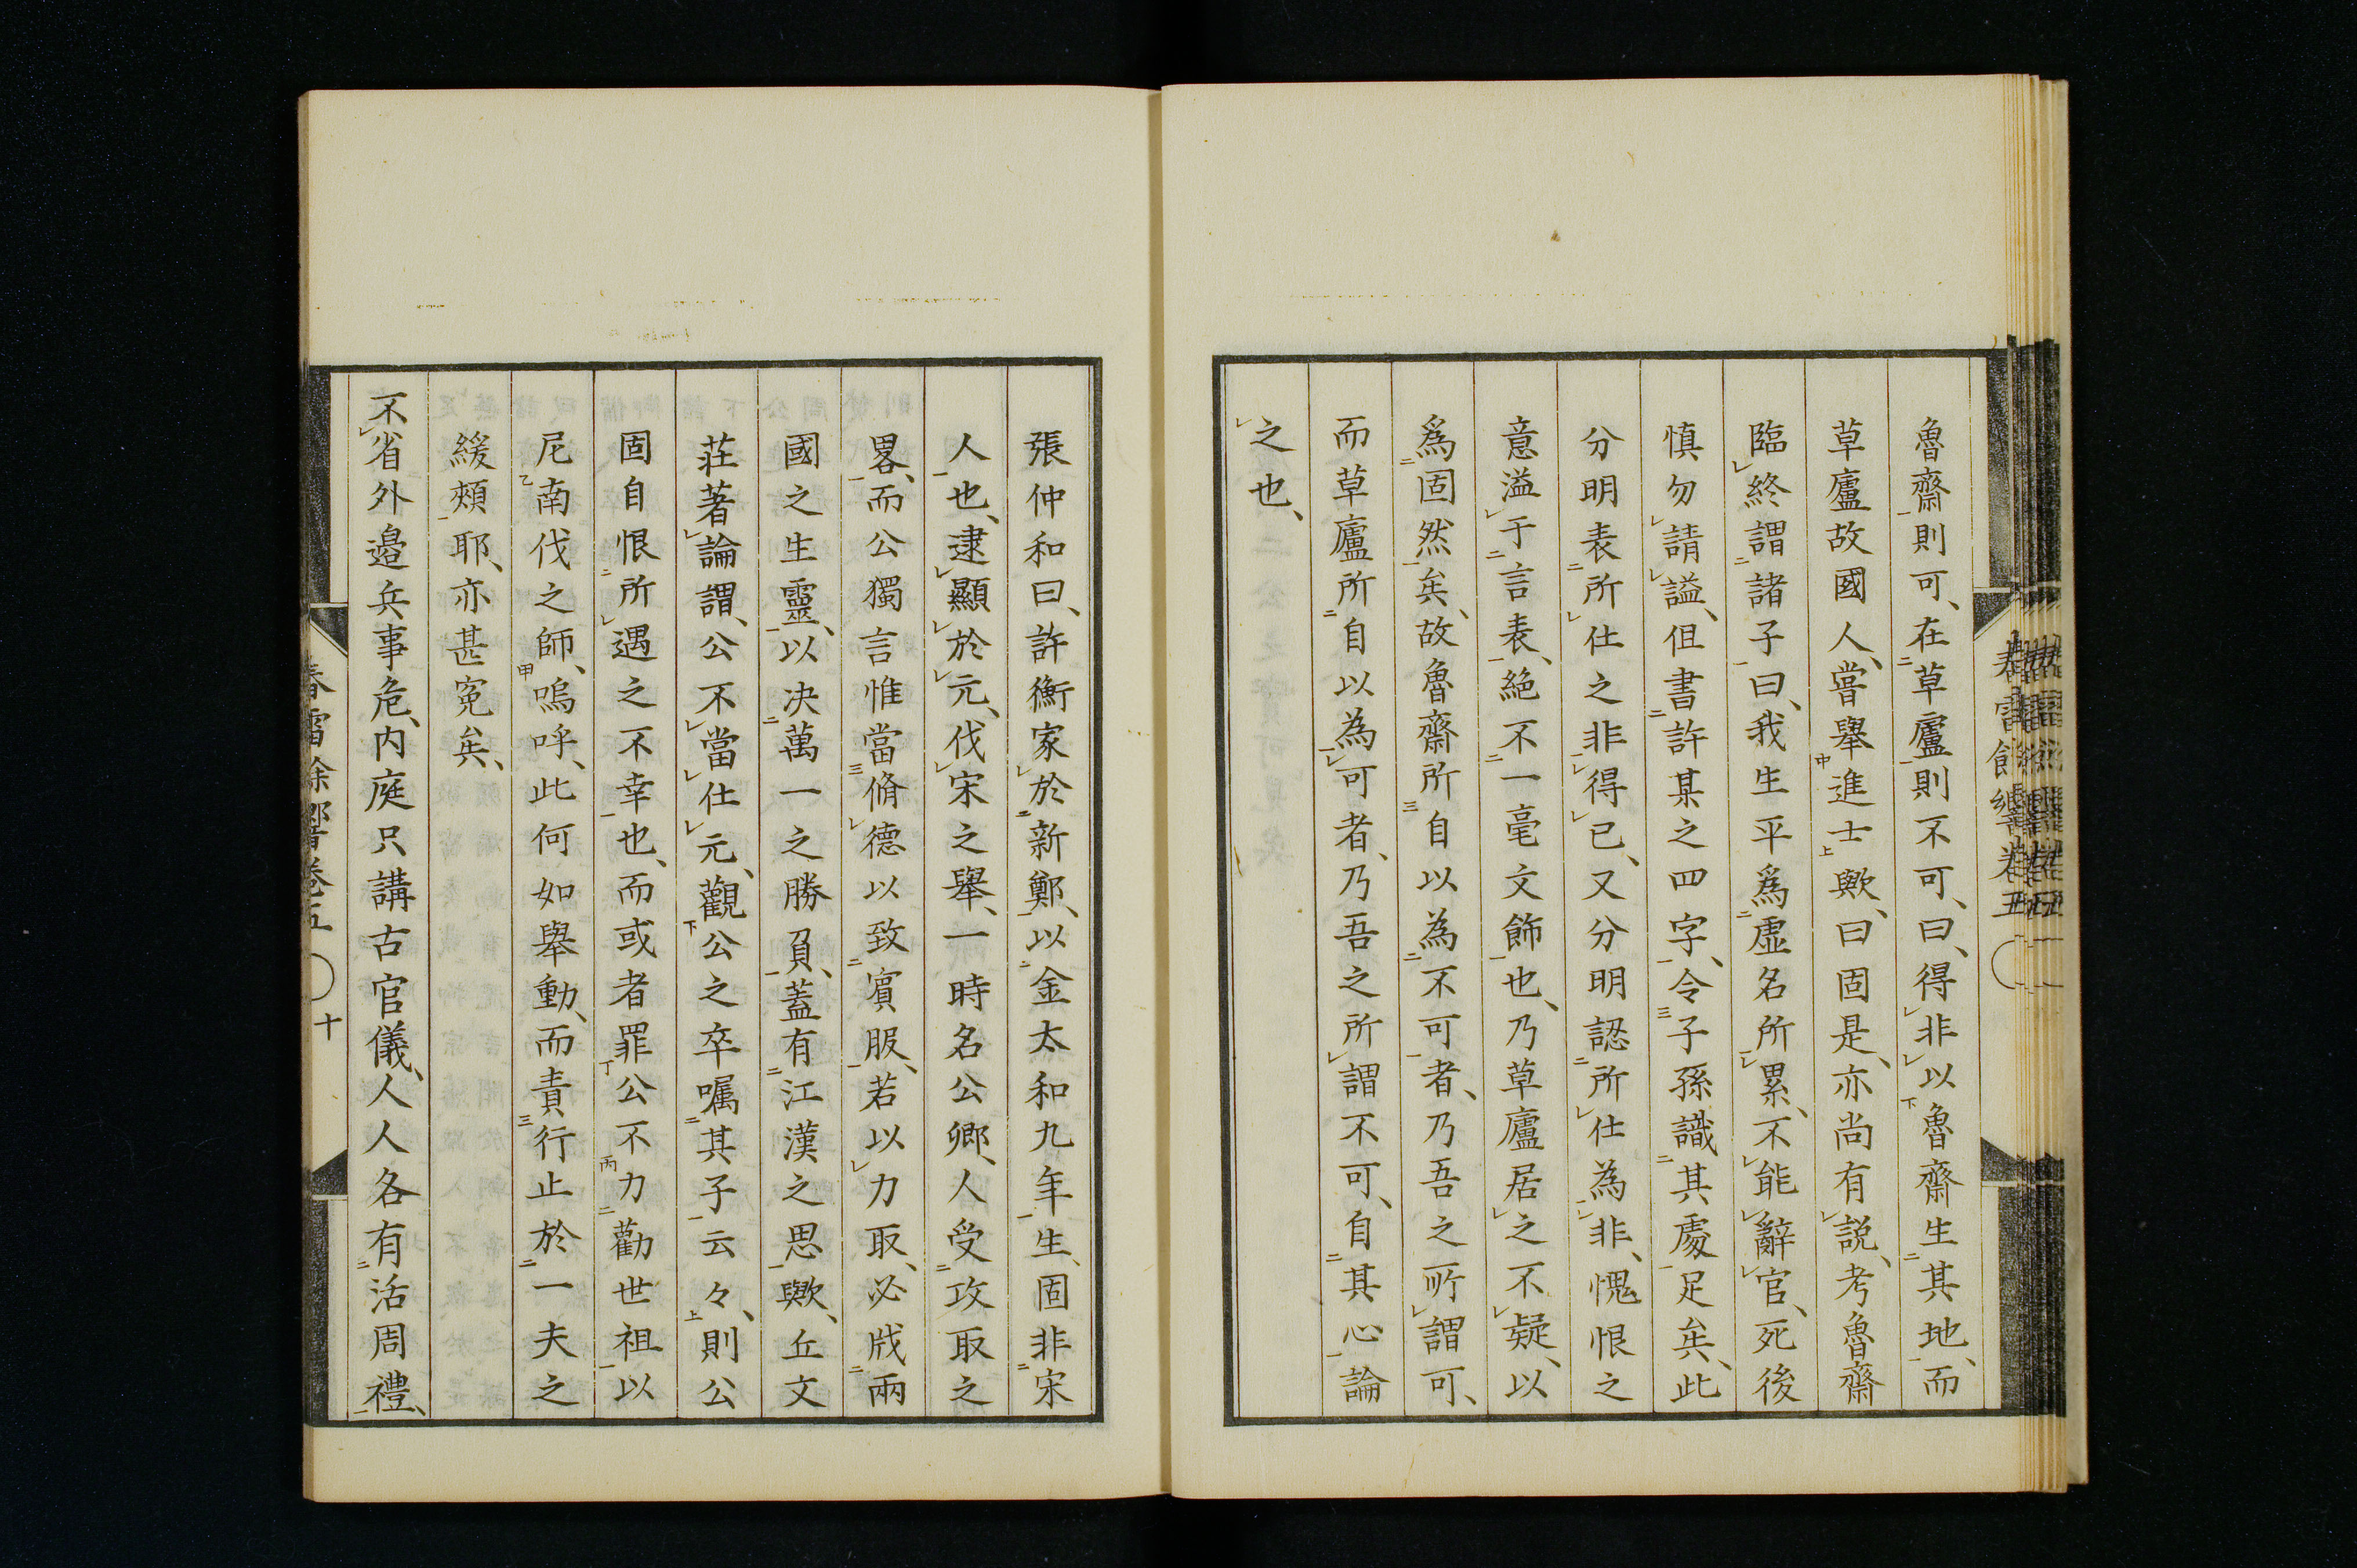 魯齋則可、在草廬則不可、曰、得非以魯齋生其地、而
草廬故國人、嘗舉進士歟、曰固是、亦尚有説、考魯齋
臨終謂諸子曰、我生平爲虛名所累、不能辭官、死後
慎勿請謚、但書許某之四字、令子孫識其處足矣、此
分明表所仕之非得已、又分明認所仕為非、愧恨之
意溢于言表、絶不一毫文飾也、乃草廬居之不疑、以
爲固然矣、故魯齋所自以為不可者、乃吾之所謂可、
而草廬所自以為可者、乃吾之所謂不可、自其心論
之也、
張仲和曰、許衡家於新鄭、以金太和九年生、固非宋
人也、逮顯於元、伐宋之舉、一時名公卿、人受攻取之
畧、而公獨言惟當脩德以致賓服、若以力取、必戕兩
國之生靈、以决萬一之勝負、蓋有江漢之思歟、丘文
莊著論謂、公不當仕元、觀公之卒嘱其子云々、則公
固自恨所遇之不幸也、而或者罪公不力勸世祖以
尼南伐之師、嗚呼、此何如舉動、而責行止於一夫之
緩頰耶、亦甚寃矣、
不省外邉兵事危、内庭只講古官儀、人人各有活周禮、
春雷餘響卷五 十